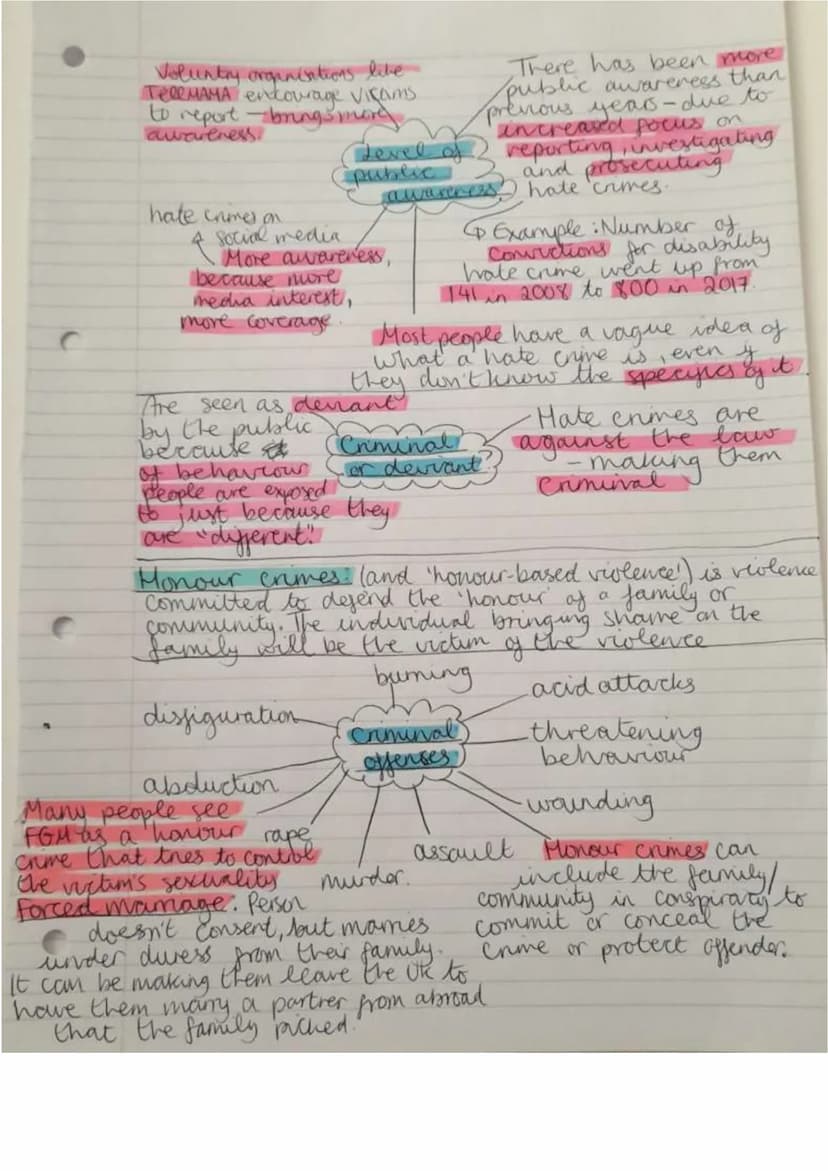 Voluntry organisations like
TellMAMA encourage victims
to report - brings more
awareness.
There has been more
public awareness than
previous years - due to
increased focus on
reporting, investigating
and prosecuting
hate crimes.
Level of
public
awareness
hate crimes on
social media
More awareness,
because more
media interest,
more coverage.
Example: Number of
convictions for disability
hate crime went up from
141 in 2008 to 800 in 2017.
Most people have a vague idea of
what a hate crime is, even if
they don't know the specifics of it.
Are seen as deviant
by the public
because
of behaviour
people are exposed
to just because they
are "different".
Criminal
or deviant?
Hate crimes are
against the law
- making them
criminal
Honour crimes: (and 'honour-based violence') is violence
committed to defend the 'honour' of a family or
community. The individual bringing shame on the
family will be the victim of the violence
burning
acid attacks
disfiguration
Criminal
offenses
threatening
behaviour
abduction
wounding
Many people see
FGM as a honour
crime that tries to control
the victim's sexuality
rape
murder.
assault
Honour crimes can
include the family/
community in conspiracy to
commit or conceal the
crime or protect offender.
Forced marriage. Person
doesn't consent, but marries
under duress from their family.
It can be making them leave the UK to
have them marry a partner from abroad
that the family picked.